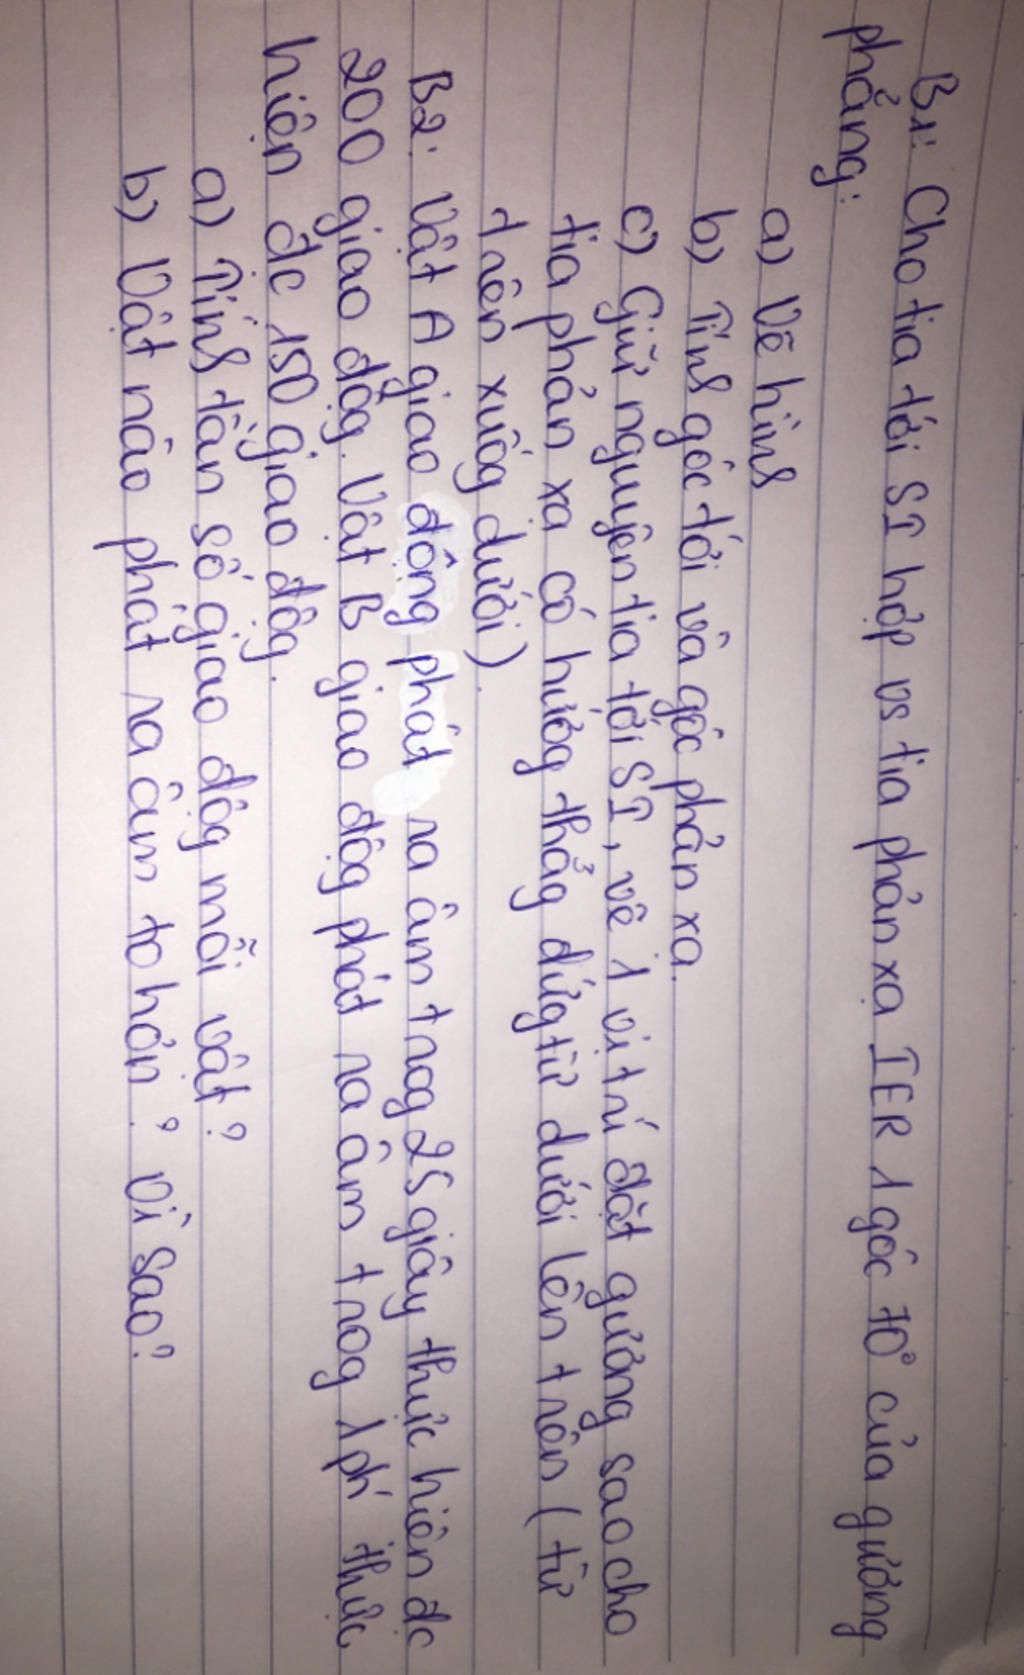 B1: Cho tia tới SI hợp vs tia phản xạ IER 1 góc 70° của gương
phẳng:
a) Vẽ hình
b) Tính góc tới và góc phản xạ.
c) Giữ nguyên tia tới SI, vẽ 1 vị trí đặt gương sao cho
tia phản xạ có hướg thẳg đứg từ dưới lên trên (từ
trên xuốg dưới)
B2: Vật A giao động phát ra âm trog 25 giây thực hiện đc
200 giao độg. Vật B giao độg phát ra âm trog 1 ph' thực
hiện đc 150 giao độg.
a) Tính tần số giao độg mỗi vật?
b) Vật nào phát ra âm to hơn? Vì sao?